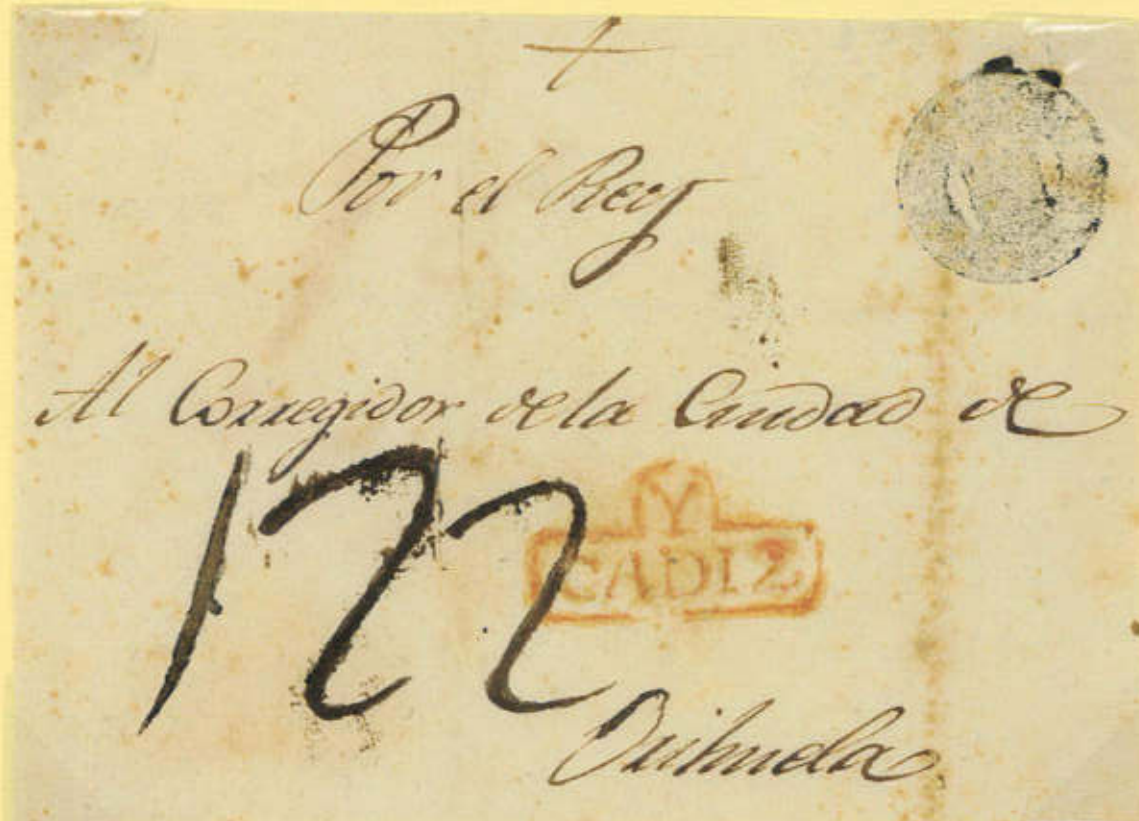 Por el Rey
Al Corregidor de la Ciudad de
122
Y
CADIZ
Orihuela